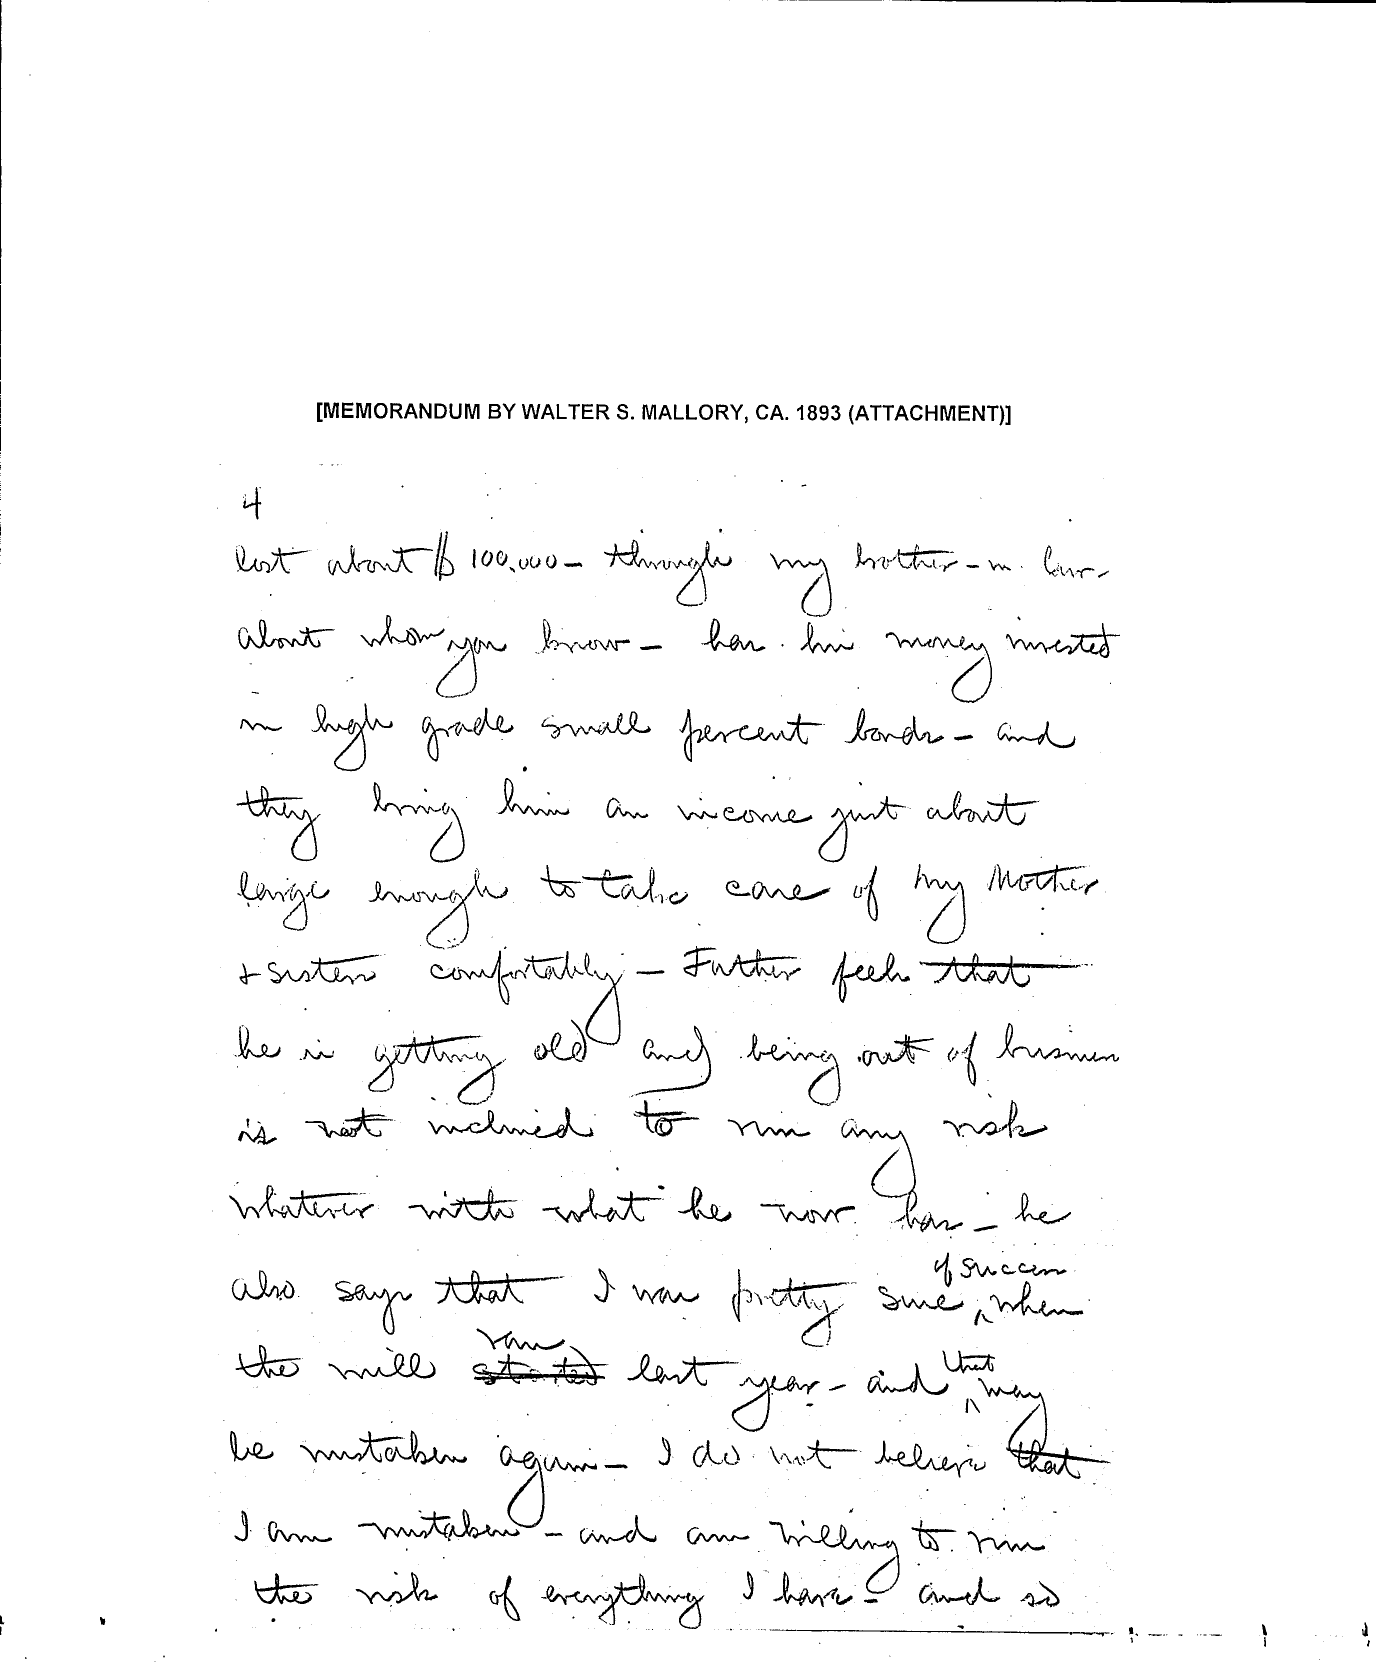 [MEMORANDUM BY WALTER S. MALLORY, CA. 1893 (ATTACHMENT)]
4
lost about $100,000 – through my brother-in-law-
about whom you know – has his money invested
in high grade small percent bonds – and
they bring him an income just about
large enough to take care of my Mother
& sisters comfortably – Father feels that
he is getting old and being out of business
is not inclined to run any risk
whatever with what he now has – he
also says that I was pretty sure ^ of success when
the mill started ran last year – and ^ that may
be mistaken again – I do not believe that
I am mistaken – and am willing to run
the risk of everything I have – and so